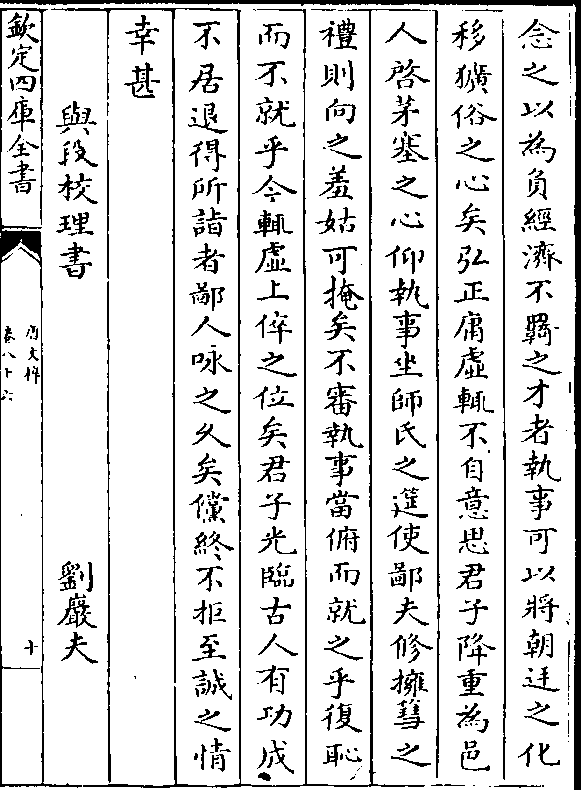 念之以為負經濟不羈之才者執事可以將朝廷之化
移獷俗之心矣弘正庸虛輒不自意思君子降重為邑
人啓茅塞之心仰執事坐師氏之筵使鄙夫修擁篲之
禮則向之羞姑可掩矣不審執事當俯而就之乎復恥
而不就乎今輒虛上倅之位矣君子光臨古人有功成
不居退得所詣者鄙人咏之久矣儻終不拒至誠之情
幸甚
與段校理書 劉巖夫
欽定四庫全書
卷八十六
十